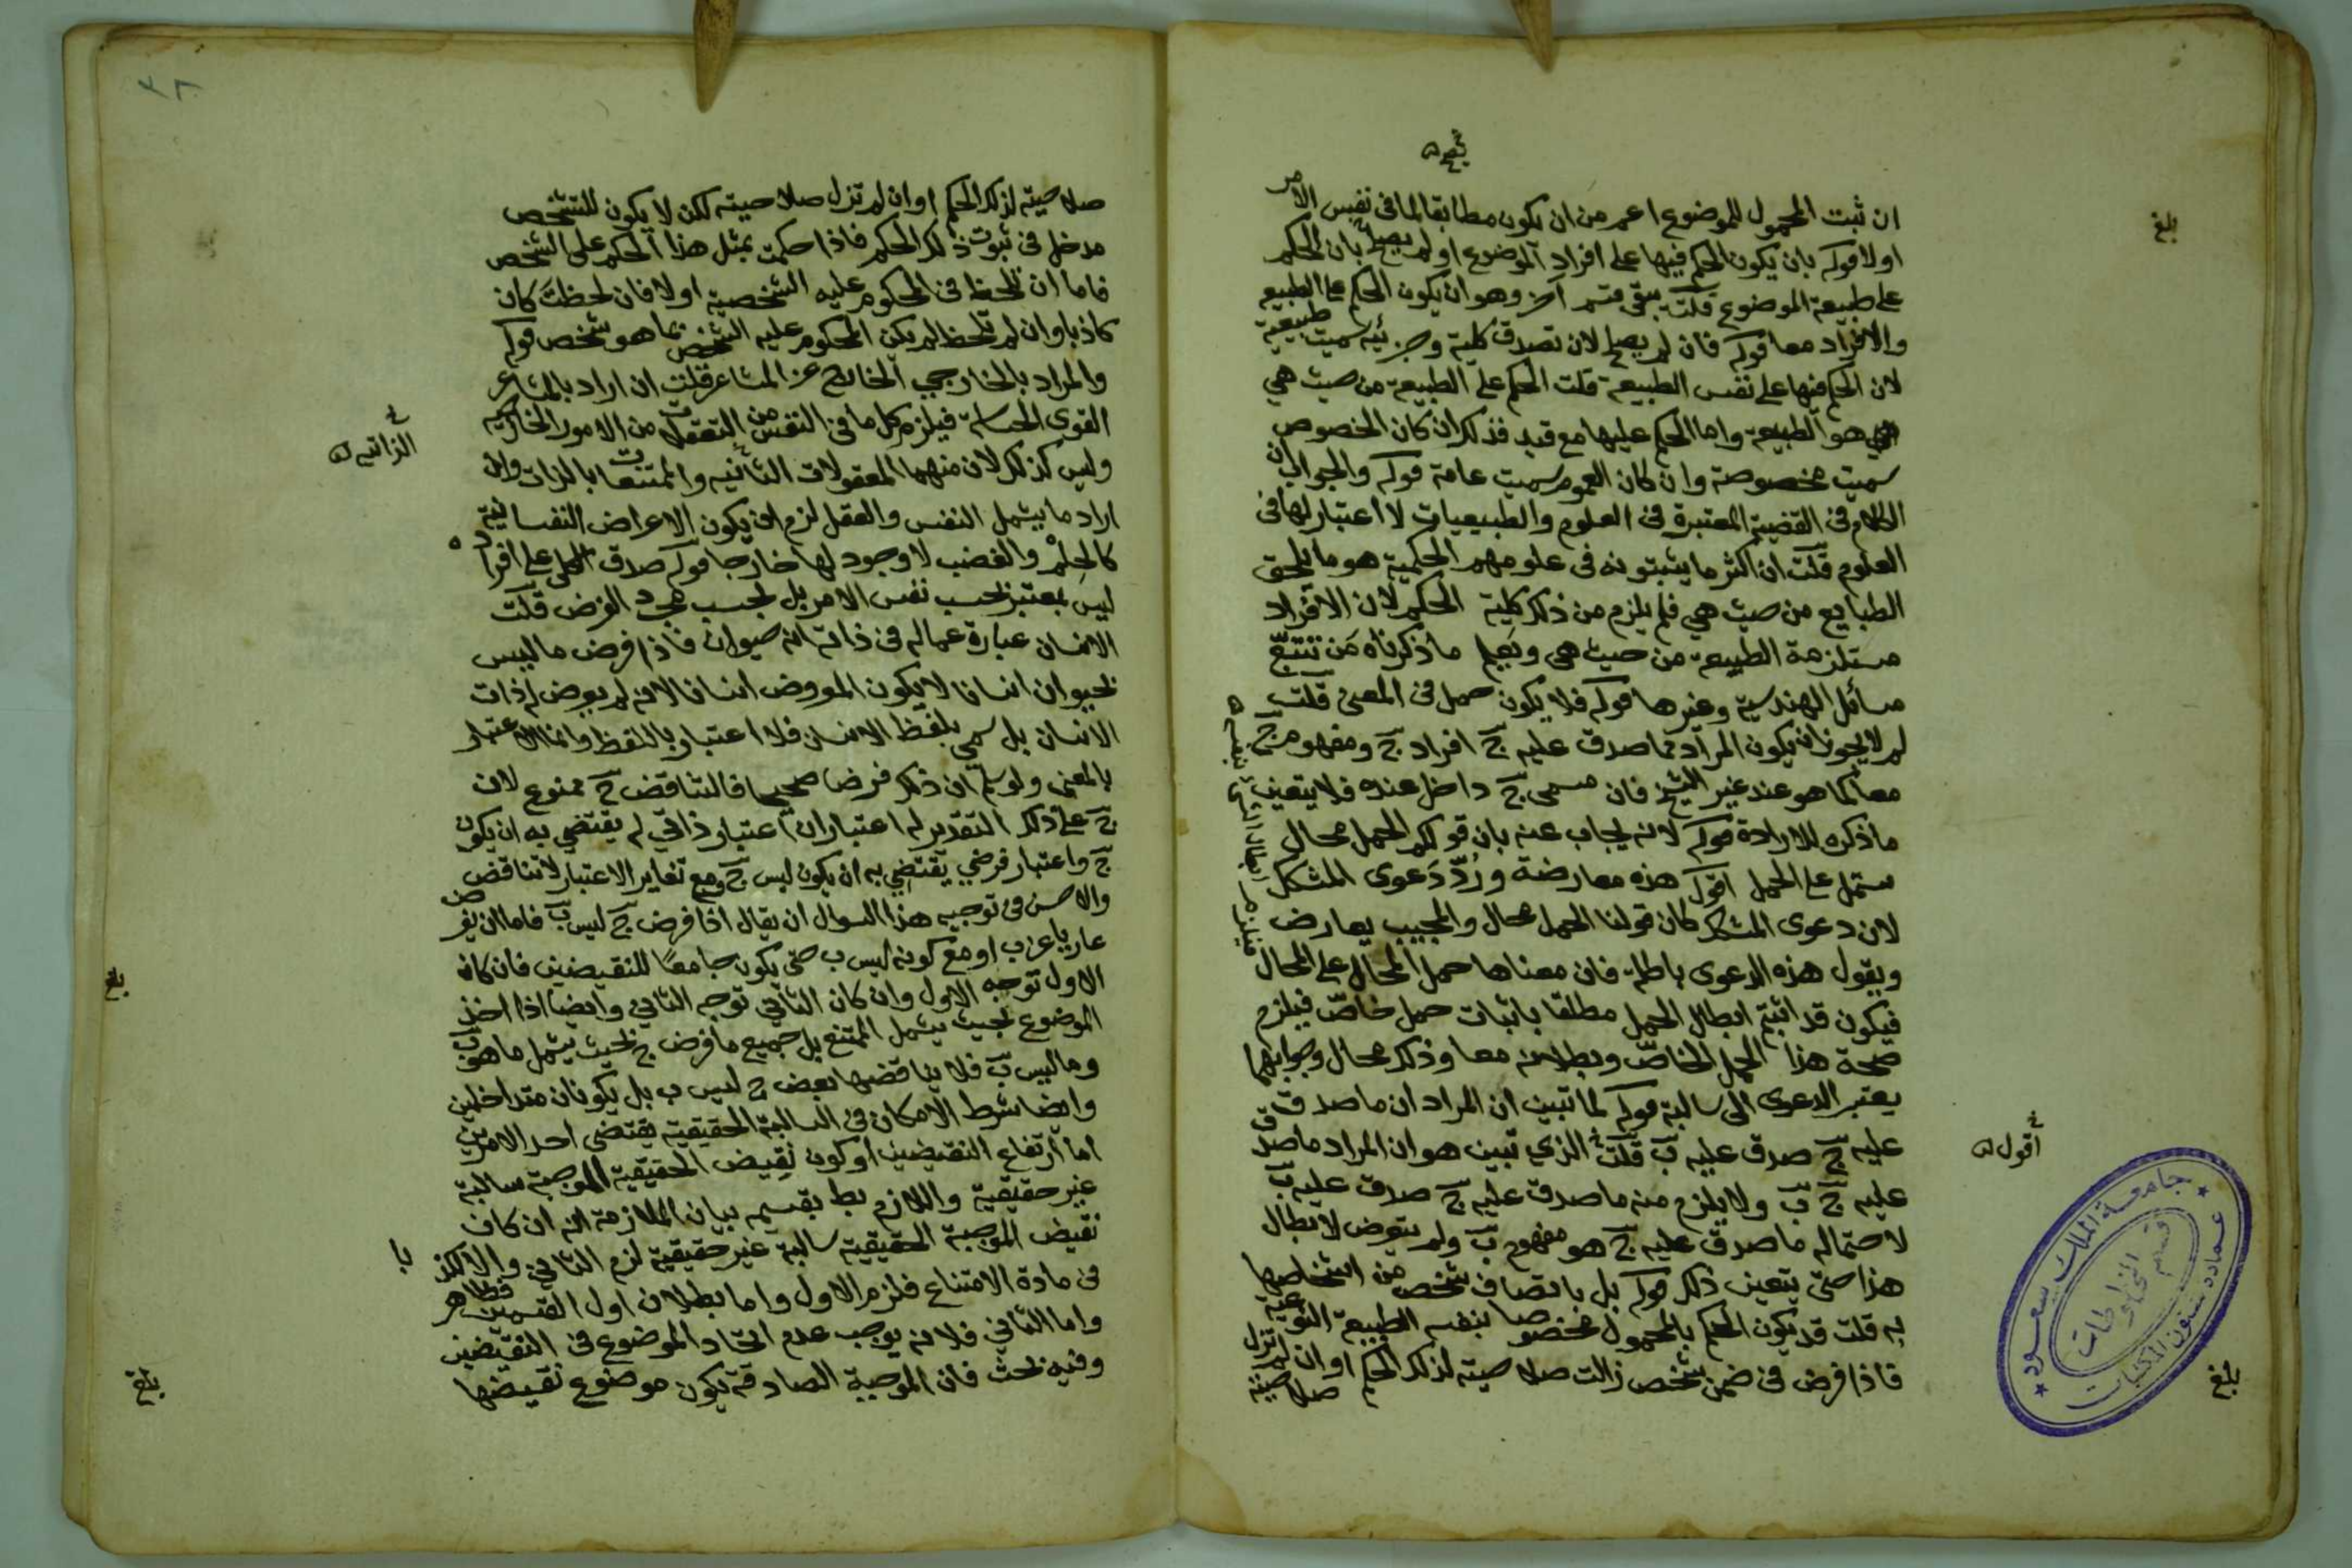 ان ثبت المحمول للموضوع اعم من ان يكون مطابقا لما في نفس الامر
اولا قوله بان يكون الحكم فيها على افراد الموضوع او لم يصلح بان الحكم
على طبيعة الموضوع قلت بقي قسم آخر وهو ان يكون الحكم على الطبيعة
والافراد معا قوله فان لم يصلح لان تصدق كلية وجزئية سميت طبيعية
لان الحكم فيها على نفس الطبيعة قلت الحكم على الطبيعة من حيث هي
هو الطبيعة واما الحكم عليها مع قيد فذلك ان كان الخصوص
سميت مخصوصة وان كان العموم سميت عامة قوله والجواب ان
الكلام في القضية المعتبرة في العلوم والطبيعيات لا اعتبار لها في
العلوم قلت ان اكثر ما يثبتونه في علومهم الحكمية هو ما يلحق
الطبايع من حيث هي فلم يلزم من ذلك كلية الحكم لان الافراد
مستلزمة الطبيعة من حيث هي ويعلم ما ذكرناه من تتبع
مسائل الهندسية وغيرها قوله فلا يكون حمل في المعنى قلت
لم لا يجوز ان يكون المراد بما صدق عليه ج افراد ج ومفهوم ج
معا كما هو عند غير الشيخ فان مسمى ج داخل عنده فلا يتعين
ما ذكره للارادة قوله لانه يجاب عنه بان قولكم الحمل محال
يشتمل على الحمل اقول هذه معارضة ورد دعوى المشكل
لان دعوى المشكك كان قولنا الحمل محال والمجيب يعارض
ويقول هذه الدعوى باطلة فان معناها حمل المحال على المحال
فيكون قد اثبتم ابطال الحمل مطلقا باثبات حمل خاص فيلزم
صحة هذا الحمل الخاص وبطلانه معا وذلك محال وجوابهما
يعتبر الدعوى الى سالبة قوله لما تبين ان المراد ان ما صدق
عليه ج صدق عليه ب قلت الذي تبين هو ان المراد ما صدق
عليه ج ب ولا يلزم منه ما صدق عليه ج صدق عليه ب
لاحتماله ما صدق عليه ج هو مفهوم ب ولم يتعرض لابطال
هذا حتى يتعين ذلك قوله بل باتصاف شخص من اشخاصها
به قلت قد يكون الحكم بالمحمول مخصوصا بنفس الطبيعة النوعية
فاذا فرض في ضمن شخص زالت صلاحيته لذلك الحكم او ان لم تزل
صلاحيته
بلغ
اقول
بلغ
جامعة الملك سعود
عمادة شئون المكتبات
قسم المخطوطات
٣٨
صلاحيته لذلك الحكم او ان لم تزل صلاحيته لكن لا يكون للتشخص
مدخل في ثبوت ذلك الحكم فاذا حكمت بمثل هذا الحكم على الشخص
فاما ان تلحظ في المحكوم عليه الشخصية اولا فان لحظت كان
كاذبا وان لم تلحظ لم يكن المحكوم عليه الشخص بما هو شخص قوله
والمراد بالخارجي الخارج عن المشاعر قلت ان اراد بالمشاعر
القوى الحساسة فيلزم كل ما في النفس من التعقلات من الامور الخارجية
وليس كذلك لان منهما المعقولات الثانية والممتنعات بالذات وان
اراد ما يشمل النفس والعقل لزم ان يكون الاعراض النفسانية
كالحلم والغضب لا وجود لها خارجا قوله صدق الكلي على افراده
ليس بمعتبر بحسب نفس الامر بل بحسب مجرد الفرض قلت
الانسان عبارة عما له في ذاته انه حيوان فاذا فرض ما ليس
بحيوان انسانا لا يكون المفروض انسانا لانه لم يعرض له ذات
الانسان بل سمي بلفظ الانسان فلا اعتبار باللفظ وانما الاعتبار
بالمعنى ولو سلم ان ذلك فرضا صحيحا فالتناقض ح ممنوع لان
ج على ذلك التقدير له اعتباران اعتبار ذاتي له يقتضي به ان يكون
ج واعتبار فرضي يقتضي به ان يكون ليس ج ومع تغاير الاعتبار لا تناقض
والاحسن في توجيه هذا السوال ان يقال اذا فرض ج ليس ب فاما ان يفرض
عاريا عن ب او مع كونه ليس ب حتى يكون جامعا للنقيضين فان كان
الاول توجه الاول وان كان الثاني توجه الثاني وايضا اذا اخذ
الموضوع بحيث يشمل الممتنع بل جميع ما فرض ج بحيث يشمل ما هو ب
وما ليس ب فلا يناقضها بعض ج ليس ب بل يكونان متداخلين
وايضا شرط الامكان في السالبة الحقيقية يقتضي احد الامرين
اما ارتفاع النقيضين او كون نقيض الحقيقية الموجبة سالبة
غير حقيقية واللازم بط بقسميه بيان الملازمة انه ان كان
نقيض الموجبة الحقيقية سالبة غير حقيقية لزم الثاني والا
في مادة الامتناع فلزم الاول واما بطلان اول القسمين فظاهر
واما الثاني فلانه يوجب عدم اتحاد الموضوع في النقيضين
وفيه بحث فان الموجبة الصادقة يكون موضوع نقيضها
بلغ
بلغ